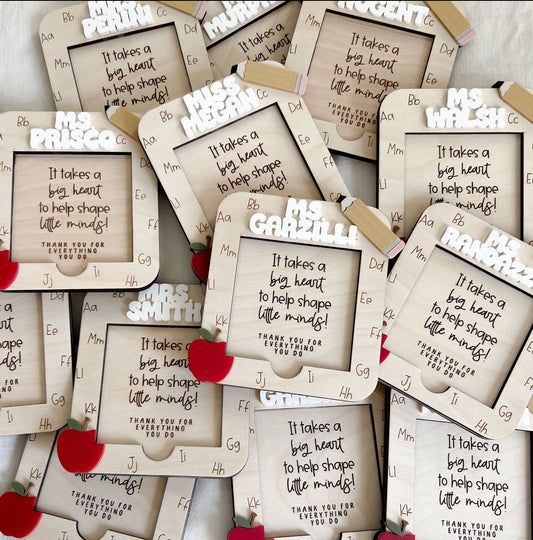 MRS.
PERINI
Aa
Cc
Dd
Mm
Ee
Ll
Ff
It takes a
big heart
to help shape
little minds!
MURPHY
It takes a
big heart
NUGENT
Cc
Dd
Ee
Ff
It takes a
big heart
to help shape
little minds!
THANK YOU FOR
EVERYTHING
YOU DO
MS.
PRISCO
Bb
Cc
Dd
Ee
Ff
Gg
Hh
Ii
Jj
It takes a
big heart
to help shape
little minds!
THANK YOU FOR
EVERYTHING
YOU DO
MISS
MEGAN
Aa
Bb
Cc
Dd
Ee
Ff
Mm
Ll
Kk
It takes a
big heart
to help shape
little minds!
MS.
WALSH
Aa
Bb
Cc
Mm
Ll
It takes a
big heart
to help shape
little minds!
MS.
GARZILLI
Aa
Bb
Cc
Dd
Ee
Ff
Gg
Hh
Ii
Jj
Kk
Ll
Mm
It takes a
big heart
to help shape
little minds!
THANK YOU FOR
EVERYTHING
YOU DO
MS.
Aa
Bb
Mm
Ll
Kk
Jj
Ii
Hh
Gg
It takes a
big heart
to help shape
little minds!
THANK YOU FOR
EVERYTHING
YOU DO
MRS.
SMITH
Aa
Mm
Ll
Kk
Jj
Ii
Hh
Gg
It takes a
big heart
to help shape
little minds!
THANK YOU FOR
EVERYTHING
YOU DO
Ee
Ff
Gg
Ii
Hh
It takes a
big heart
to help shape
little minds!
THANK YOU FOR
EVERYTHING
YOU DO
Aa
Mm
Ll
Kk
It takes a
big heart
to help shape
little minds!
THANK YOU FOR
EVERYTHING
YOU DO
Aa
Mm
Ll
Kk
It takes a
big heart
to help shape
little minds!
THANK YOU FOR
EVERYTHING
YOU DO